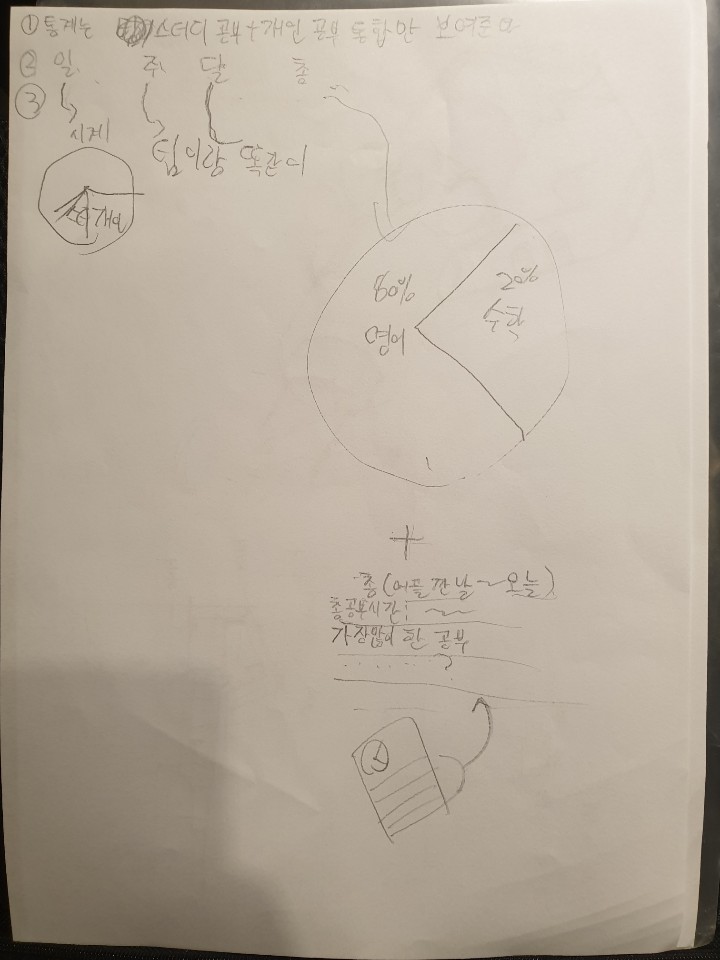 ① 통계는 스터디 공부 + 개인 공부 통합만 보여준다
② 일 주 달 총
③
시계
팀이랑 똑같이
개인
80% 20%
영어 수학
+
총 (어플 깐 날 ~ 오늘)
총 공부시간 :
가장많이 한 공부
?